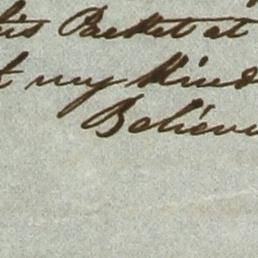 his Packet at
my Kind
Believe